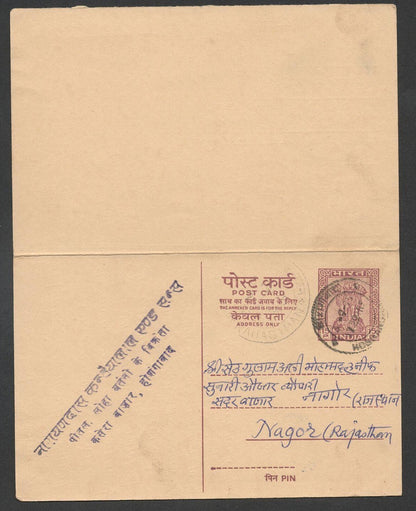 पोस्ट कार्ड
POST CARD
साथ का कार्ड जवाब के लिए
THE ANNEXED CARD IS FOR THE REPLY
केवल पता
ADDRESS ONLY
भारत
INDIA
नारायणदास कन्हैयालाल एण्ड सन्स
पीतल, लोहा बर्तनों के विक्रेता
कसेरा बाज़ार, होशंगाबाद
श्री सेठ गुलाम अली मोहम्मद हनीफ
सुनारी औजार व्यौपारी
सदर बाजार नागौर (राजस्थान
Nagor (Rajasthan
पिन PIN